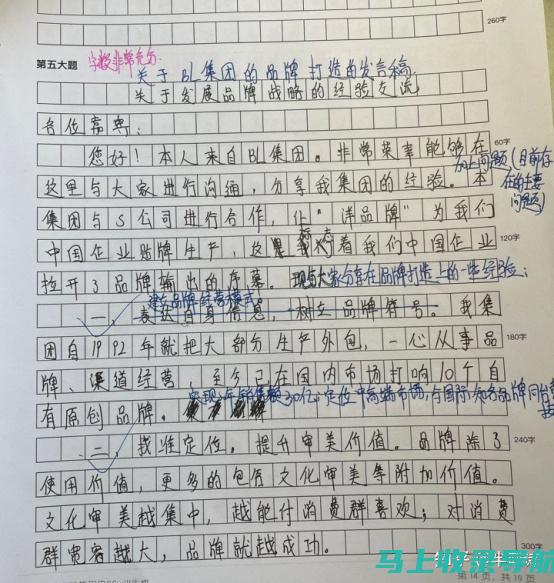 260字
第五大题
关于BL集团的品牌打造的发言稿
关于发展品牌战略的经验交流
各位嘉宾：
您好！本人来自BL集团。非常荣幸能够在
60字
加上问题（目前存在的主要问题）
这里与大家进行沟通，分享我集团的经验。本
集团与S公司进行合作，让“洋品牌”为我们
中国企业贴牌生产，这标志着我们中国企业
120字
拉开了品牌输出的序幕。现与大家分享在品牌打造上的一些经验：
建立品牌经营模式。
一，表达自身信息，树立品牌符号。我集
团自1992年就把大部分生产外包，一心从事品
180字
牌、渠道经营，至今已在国内市场打响10个自
实现年销售额30亿；定位中高端市场，与国际知名品牌同台竞技
有原创品牌。
二，找准定位。提升审美价值。品牌除了
240字
使用价值，更多的包含文化审美等附加价值。
文化审美越集中，越能付消费群喜欢；对消费
群宽容越大，品牌就越成功。
300字
马上收录导航
第14页，共19页